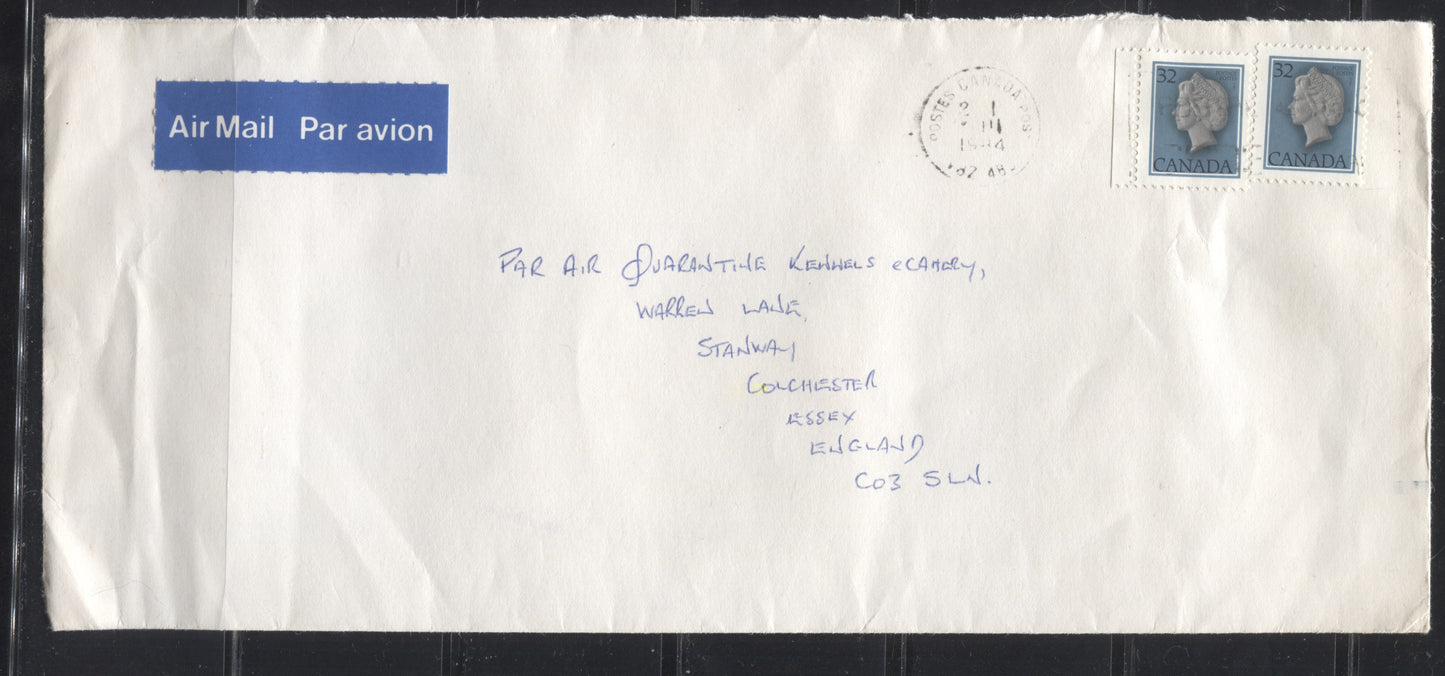 Air Mail Par avion
POSTES CANADA POS
III
1984
32
CANADA
32
CANADA
PAR AIR QUARANTINE KENNELS & CATTERY,
WARREN LANE,
STANWAY
COLCHESTER
ESSEX
ENGLAND
CO3 5LN.